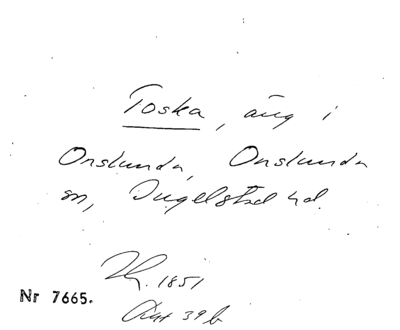 Toska, äng i
Onslunda, Onslunda
sn, Ingelstad hd.
1851
Akt 39 b
Nr 7665.